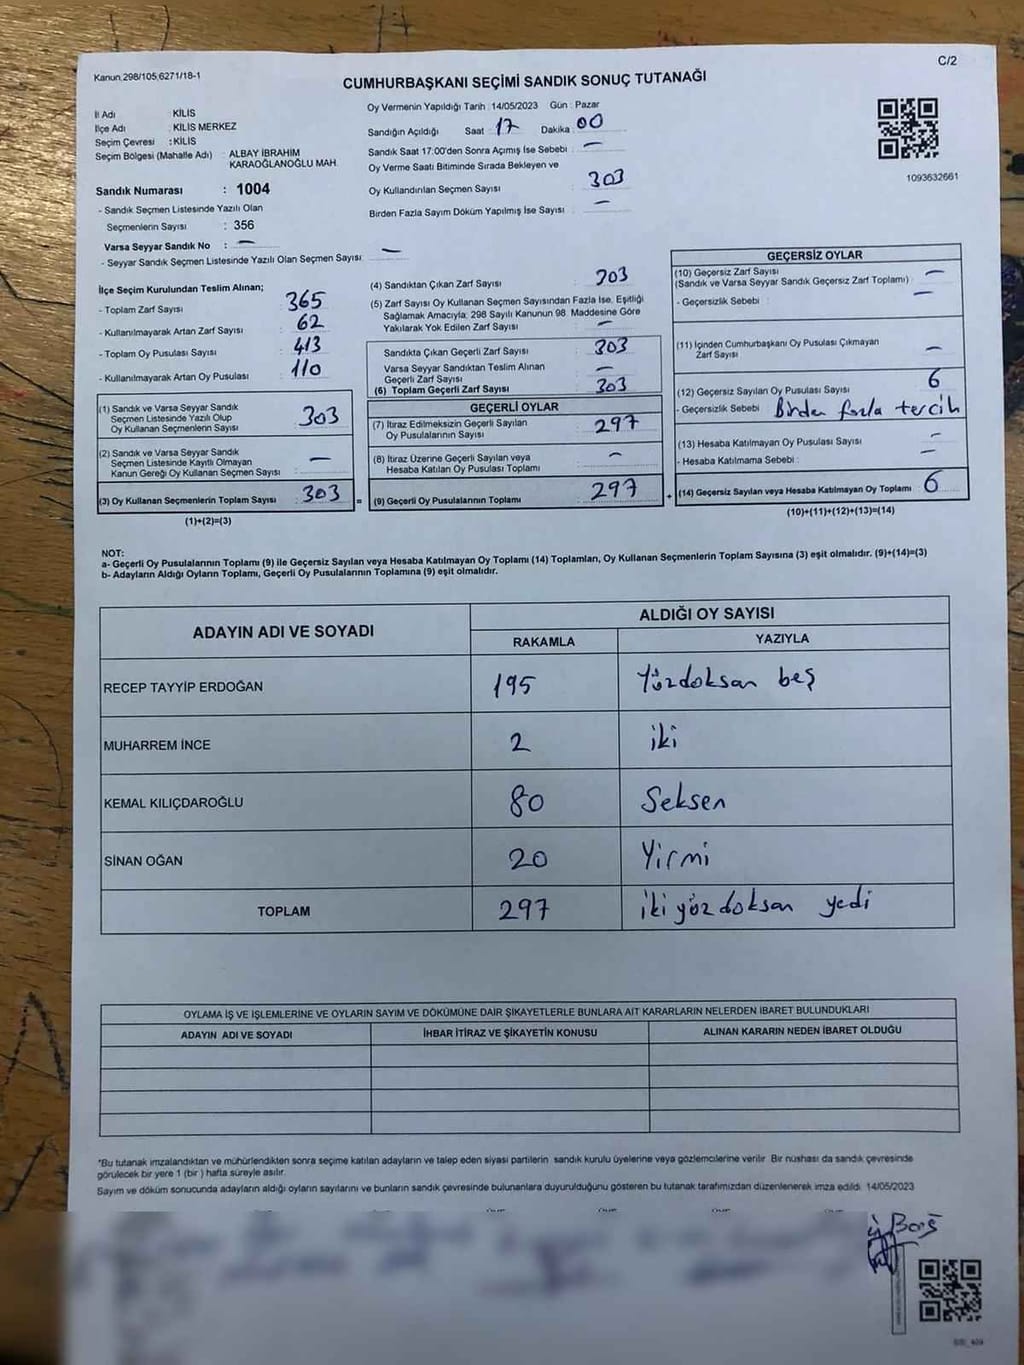 Kanun 298/105,6271/18-1
C/2
CUMHURBAŞKANI SEÇİMİ SANDIK SONUÇ TUTANAĞI
İl Adı : KİLİS
İlçe Adı : KİLİS MERKEZ
Seçim Çevresi : KİLİS
Seçim Bölgesi (Mahalle Adı) ALBAY İBRAHİM
KARAOĞLANOĞLU MAH.
Sandık Numarası : 1004
- Sandık Seçmen Listesinde Yazılı Olan
Seçmenlerin Sayısı : 356
Varsa Seyyar Sandık No : —
- Seyyar Sandık Seçmen Listesinde Yazılı Olan Seçmen Sayısı: —
Oy Vermenin Yapıldığı Tarih : 14/05/2023 Gün : Pazar
Sandığın Açıldığı Saat : 17 Dakika : 00
Sandık Saat 17:00'den Sonra Açımış İse Sebebi : —
Oy Verme Saati Bitiminde Sırada Bekleyen ve
Oy Kullandırılan Seçmen Sayısı : 303
Birden Fazla Sayım Döküm Yapılmış İse Sayısı : —
1093632661
İlçe Seçim Kurulundan Teslim Alınan;
- Toplam Zarf Sayısı : 365
- Kullanılmayarak Artan Zarf Sayısı : 62
- Toplam Oy Pusulası Sayısı : 413
- Kullanılmayarak Artan Oy Pusulası : 110
(1) Sandık ve Varsa Seyyar Sandık
Seçmen Listesinde Yazılı Olup
Oy Kullanan Seçmenlerin Sayısı : 303
(2) Sandık ve Varsa Seyyar Sandık
Seçmen Listesinde Kayıtlı Olmayan
Kanun Gereği Oy Kullanan Seçmen Sayısı : —
(3) Oy Kullanan Seçmenlerin Toplam Sayısı : 303 =
(1)+(2)=(3)
(4) Sandıktan Çıkan Zarf Sayısı : 303
(5) Zarf Sayısı Oy Kullanan Seçmen Sayısından Fazla İse, Eşitliği
Sağlamak Amacıyla; 298 Sayılı Kanunun 98. Maddesine Göre
Yakılarak Yok Edilen Zarf Sayısı : —
Sandıkta Çıkan Geçerli Zarf Sayısı : 303
Varsa Seyyar Sandıktan Teslim Alınan
Geçerli Zarf Sayısı : —
(6) Toplam Geçerli Zarf Sayısı : 303
GEÇERLİ OYLAR
(7) İtiraz Edilmeksizin Geçerli Sayılan
Oy Pusulalarının Sayısı : 297
(8) İtiraz Üzerine Geçerli Sayılan veya
Hesaba Katılan Oy Pusulası Toplamı : —
(9) Geçerli Oy Pusulalarının Toplamı : 297 +
GEÇERSİZ OYLAR
(10) Geçersiz Zarf Sayısı : —
(Sandık ve Varsa Seyyar Sandık Geçersiz Zarf Toplamı)
- Geçersizlik Sebebi : —
(11) İçinden Cumhurbaşkanı Oy Pusulası Çıkmayan
Zarf Sayısı : —
(12) Geçersiz Sayılan Oy Pusulası Sayısı : 6
- Geçersizlik Sebebi Birden fazla tercih
(13) Hesaba Katılmayan Oy Pusulası Sayısı : —
- Hesaba Katılmama Sebebi : —
(14) Geçersiz Sayılan veya Hesaba Katılmayan Oy Toplamı : 6
(10)+(11)+(12)+(13)=(14)
NOT:
a- Geçerli Oy Pusulalarının Toplamı (9) ile Geçersiz Sayılan veya Hesaba Katılmayan Oy Toplamı (14) Toplamları, Oy Kullanan Seçmenlerin Toplam Sayısına (3) eşit olmalıdır. (9)+(14)=(3)
b- Adayların Aldığı Oyların Toplamı, Geçerli Oy Pusulalarının Toplamına (9) eşit olmalıdır.
ADAYIN ADI VE SOYADI
ALDIĞI OY SAYISI
RAKAMLA YAZIYLA
RECEP TAYYİP ERDOĞAN 195 Yüzdoksan beş
MUHARREM İNCE 2 iki
KEMAL KILIÇDAROĞLU 80 Seksen
SİNAN OĞAN 20 Yirmi
TOPLAM 297 iki yüz doksan yedi
OYLAMA İŞ VE İŞLEMLERİNE VE OYLARIN SAYIM VE DÖKÜMÜNE DAİR ŞİKAYETLERLE BUNLARA AİT KARARLARIN NELERDEN İBARET BULUNDUKLARI
ADAYIN ADI VE SOYADI İHBAR İTİRAZ VE ŞİKAYETİN KONUSU ALINAN KARARIN NEDEN İBARET OLDUĞU
*Bu tutanak imzalandıktan ve mühürlendikten sonra seçime katılan adayların ve talep eden siyasi partilerin sandık kurulu üyelerine veya gözlemcilerine verilir. Bir nüshası da sandık çevresinde
görülecek bir yere 1 (bir ) hafta süreyle asılır.
Sayım ve döküm sonucunda adayların aldığı oyların sayılarını ve bunların sandık çevresinde bulunanlara duyurulduğunu gösteren bu tutanak tarafımızdan düzenlenerek imza edildi. 14/05/2023